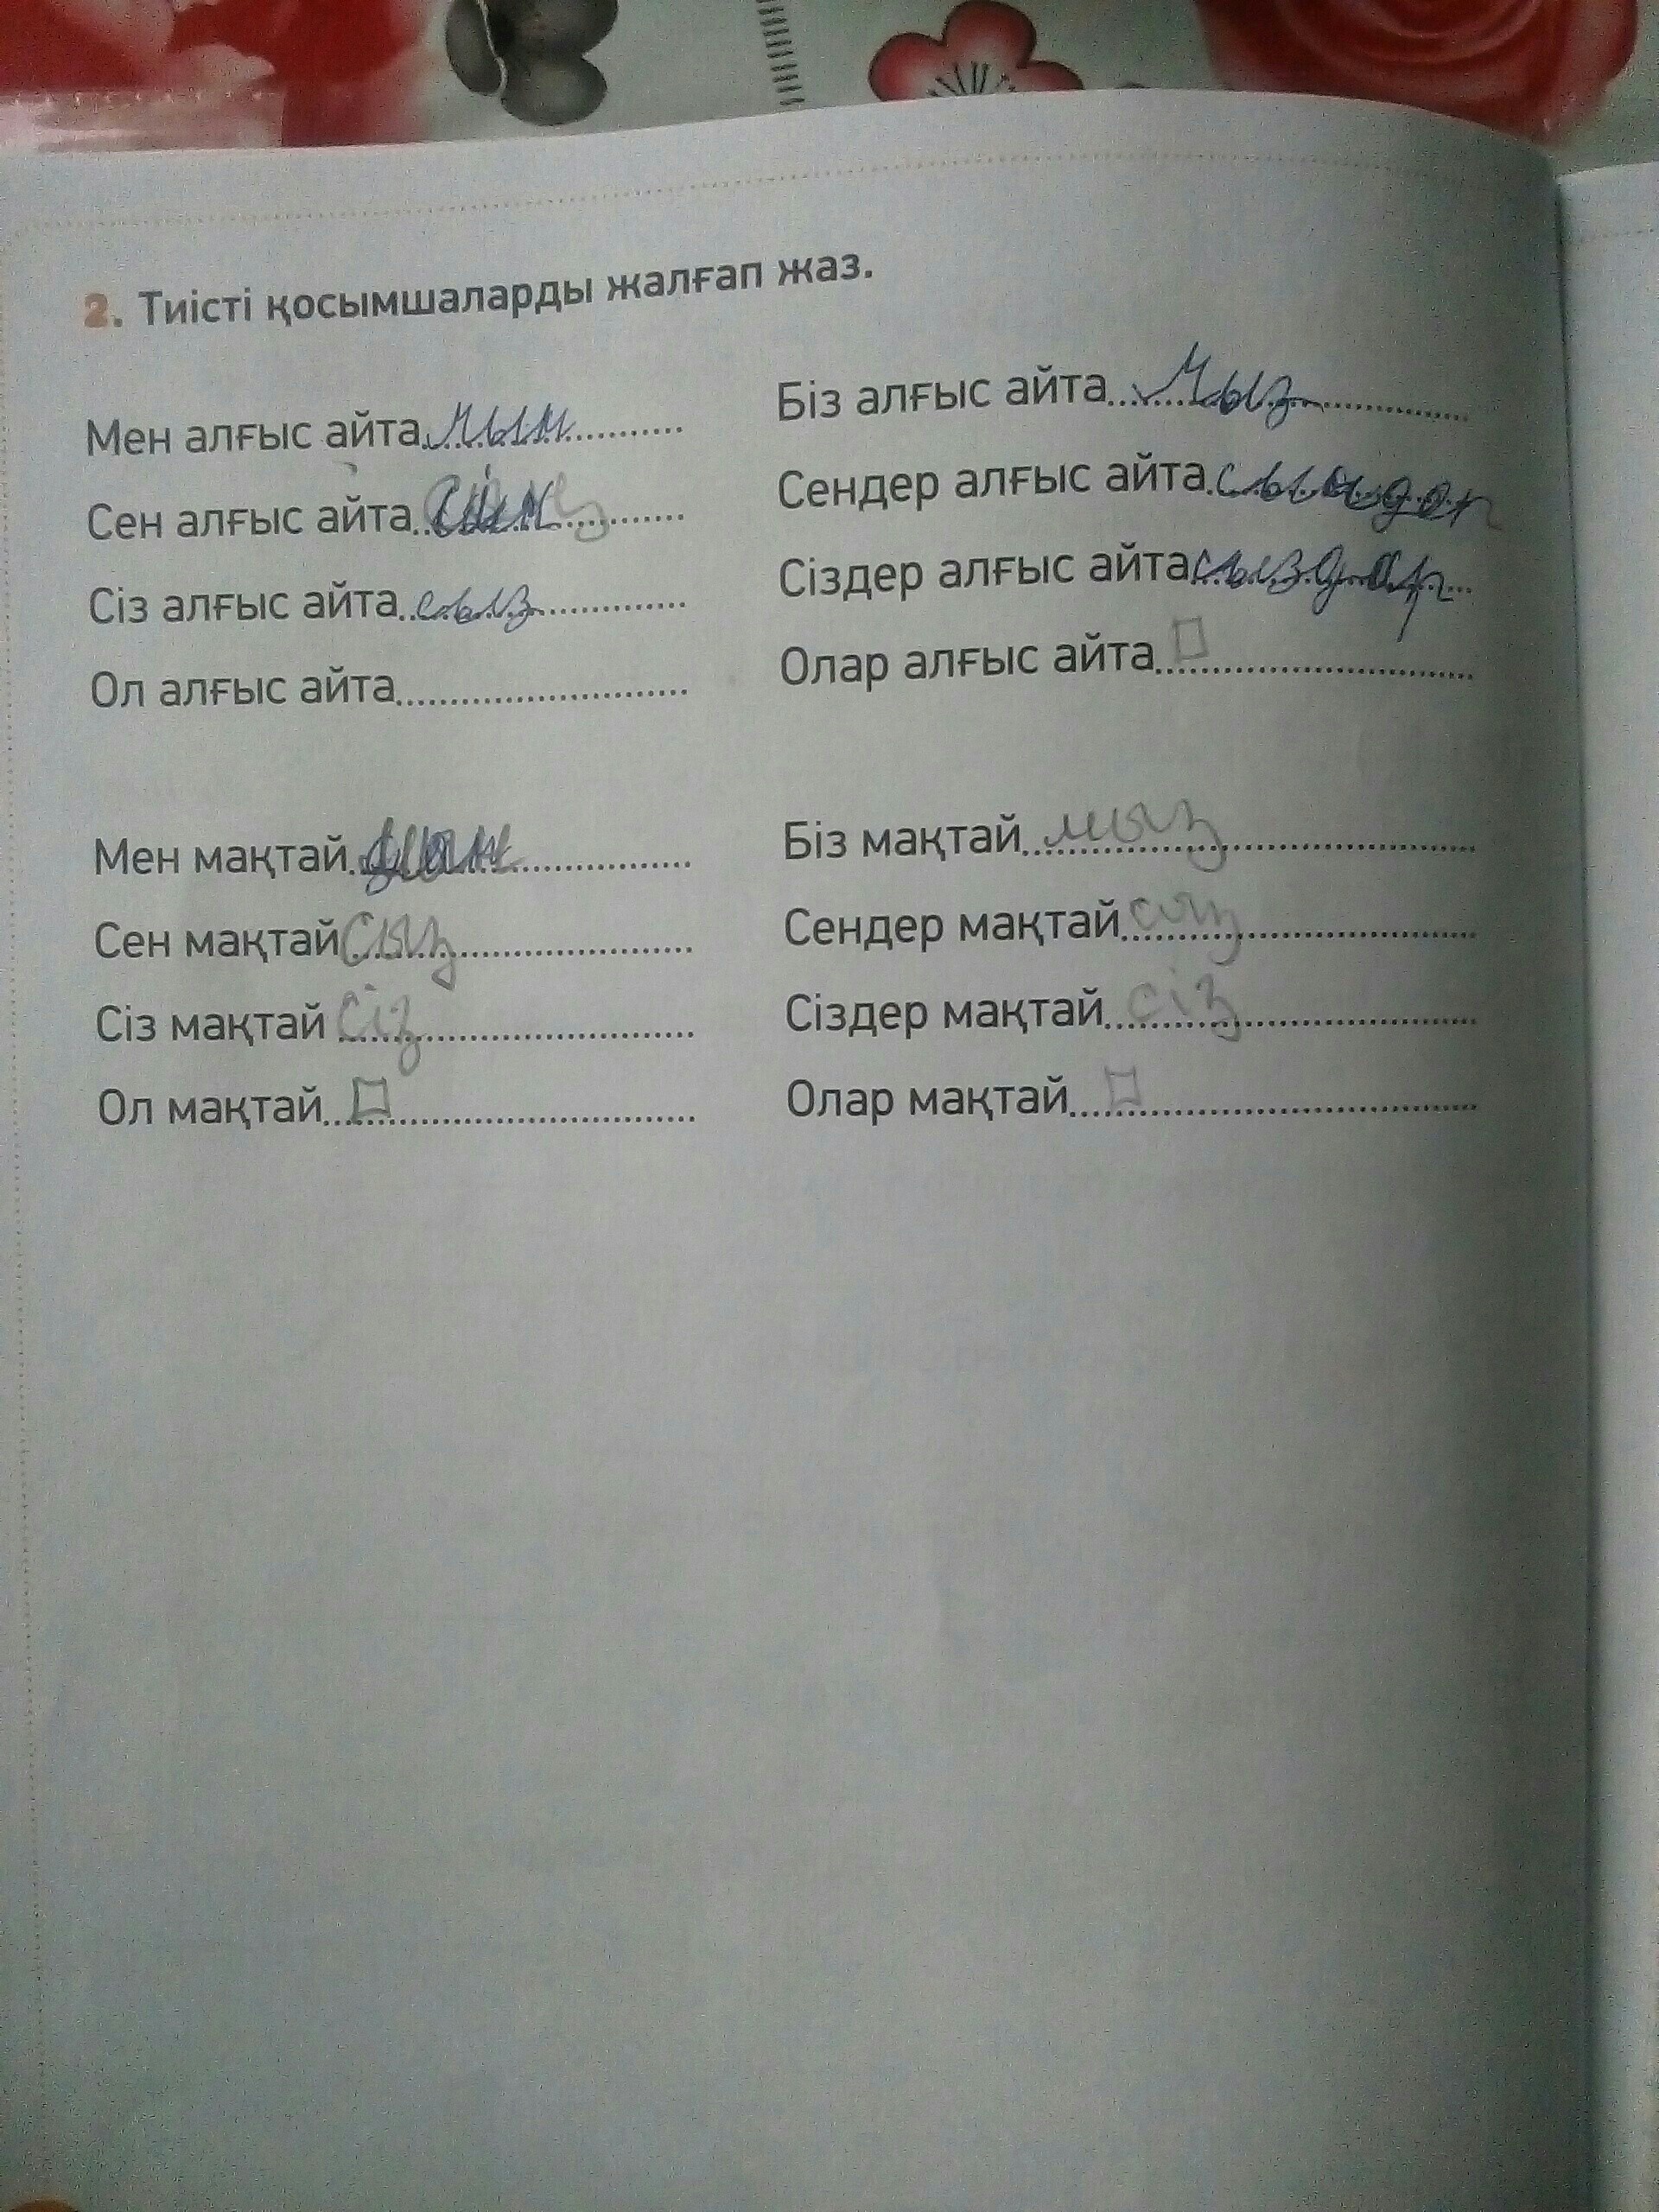 2. Тиісті қосымшаларды жалғап жаз.
Мен алғыс айта......мым......
Сен алғыс айта......
Сіз алғыс айта......сыз......
Ол алғыс айта............
Біз алғыс айта......мыз......
Сендер алғыс айта......
Сіздер алғыс айта...сыздар...
Олар алғыс айта............
Мен мақтай......
Сен мақтай...сыз......
Сіз мақтай...сіз......
Ол мақтай............
Біз мақтай...мыз......
Сендер мақтай...сыз......
Сіздер мақтай...сіз......
Олар мақтай............